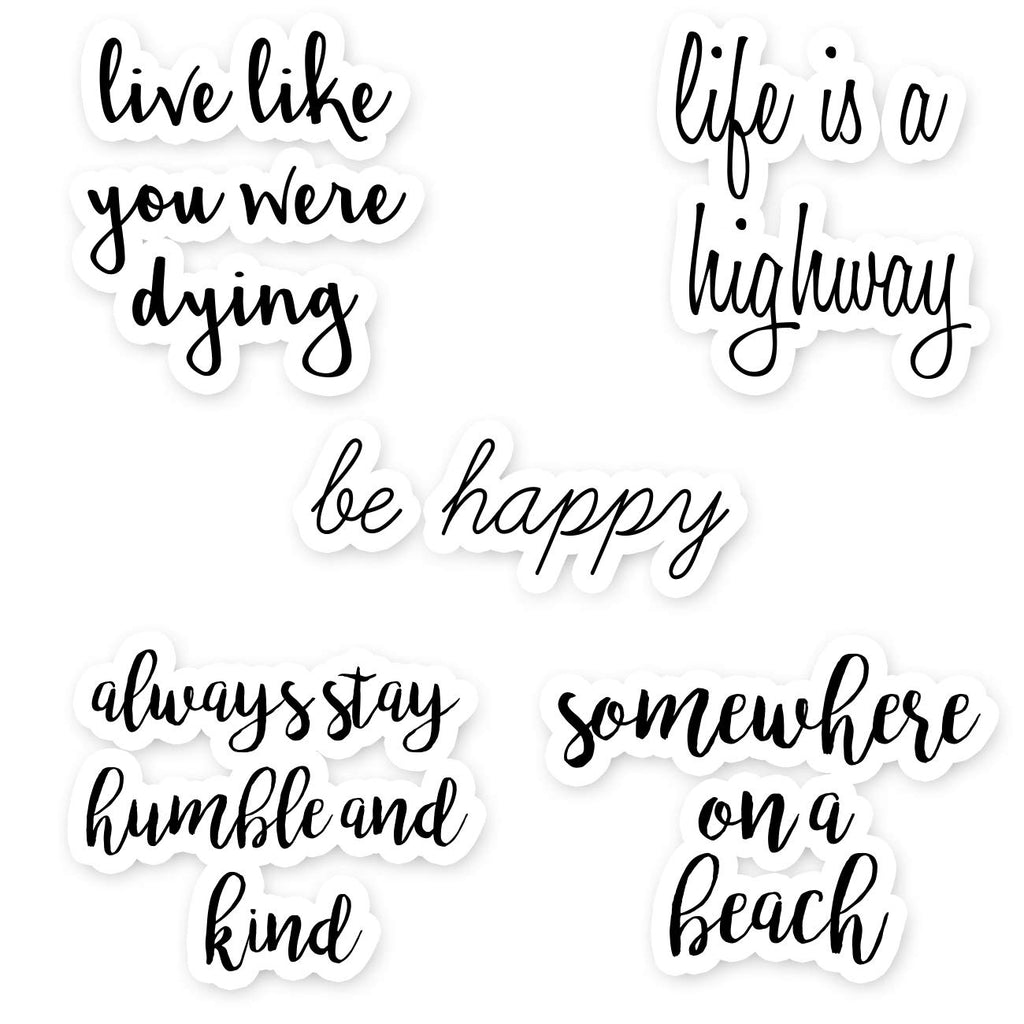 live like
you were
dying
life is a
highway
be happy
always stay
humble and
kind
somewhere
on a
beach